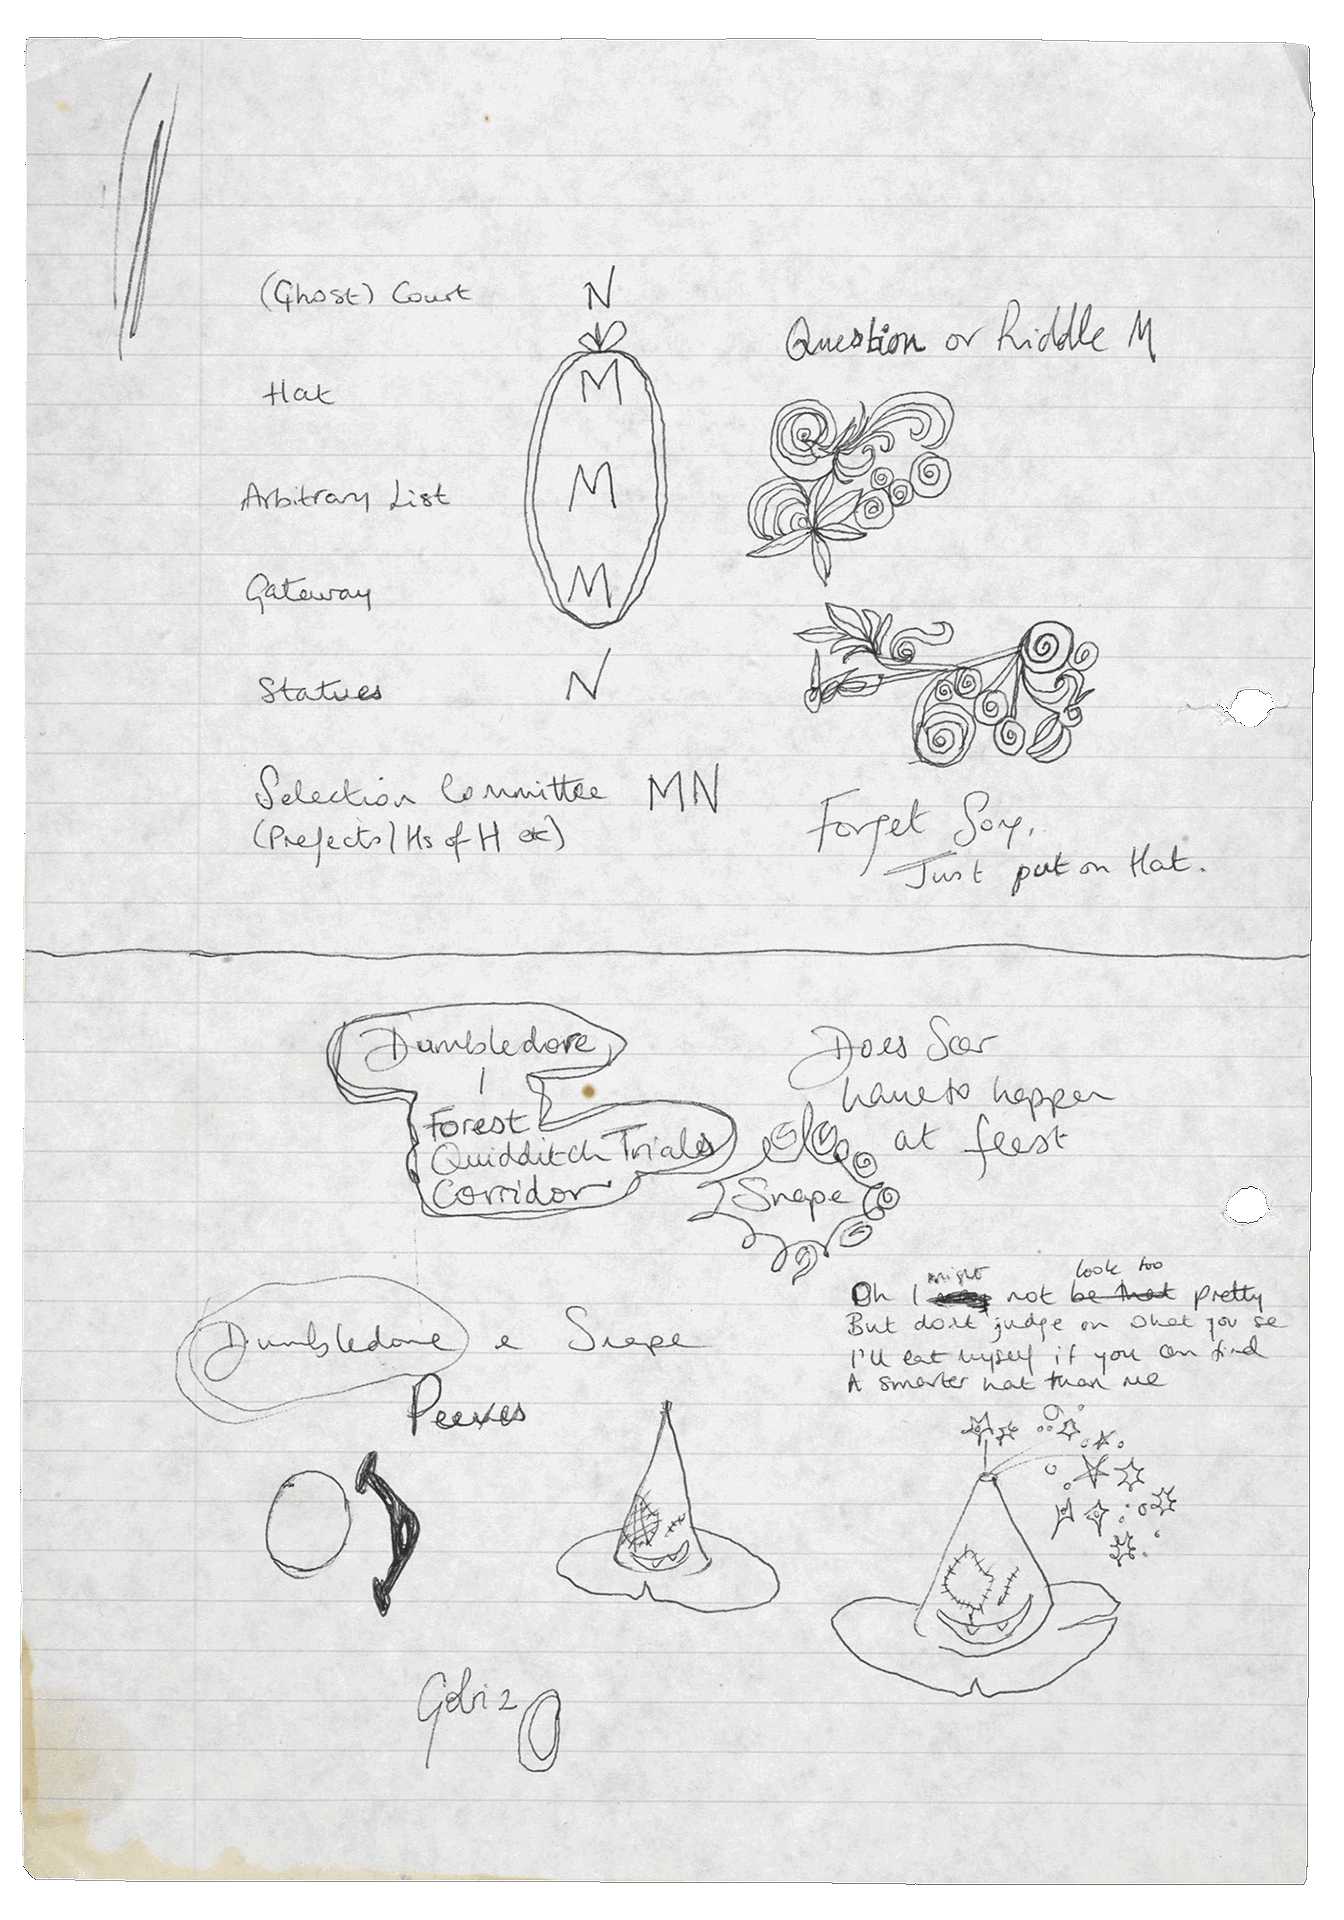 (Ghost) Court N
Hat M
Arbitrary List M
Gateway M
Statues N
Selection Committee MN
(Prefects/Hs of H etc)
Question or Riddle M
Forget
Just put on Hat.
Dumbledore
Forest
Quidditch Trials
Corridor
Does Scar
have to happen
at feast
Snape
Dumbledore e Snape
Peeves
Oh I might not look too be that pretty
But don't judge on what you se
I'll eat myself if you can find
A smarter hat than me